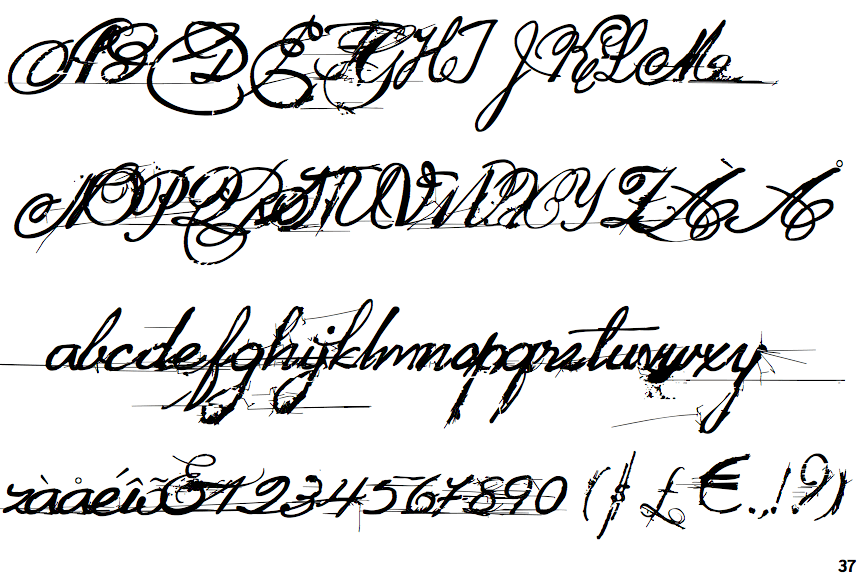 ABCDEFGHIJKLM
NOPQRSTUVWXYZÀÅ
abcdefghijklmnopqrstuvwxy
zàåéîõ&1234567890($£€.,!?)
37